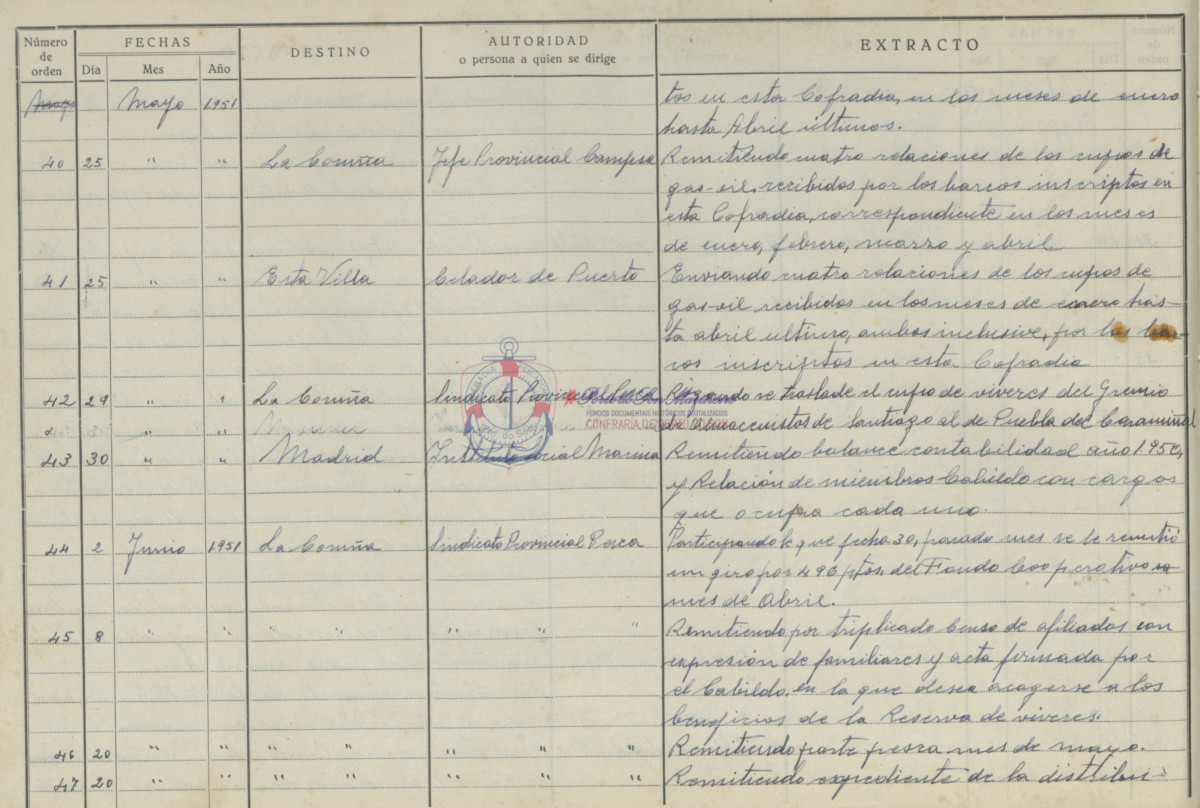 Número de orden FECHAS DESTINO AUTORIDAD o persona a quien se dirige EXTRACTO
Día Mes Año
Mayo 1951 tos en esta Cofradia, en los meses de enero
hasta Abril últimos.
40 25 " " La Coruña Jefe Provincial Campsa Remitiendo cuatro relaciones de los cupos de
gas-oil, recibidos por los barcos inscriptos en
esta Cofradia, correspondiente en los meses
de enero, febrero, marzo y abril
41 25 " " Esta Villa Celador de Puerto Enviando cuatro relaciones de los cupos de
gas-oil recibidos en los meses de enero has-
ta abril ultimo, ambos inclusive, por los bar-
cos inscriptos en esta Cofradia
42 29 " " La Coruña Sindicato Provincial Pesca Rogando se traslade el cupo de viveres del Gremio
" " " de Almacenistas de Santiago al de Puebla del Caramiñal
43 30 " " Madrid Instituto Social Marina Remitiendo balance contabilidad año 1950,
y Relación de miembros Cabildo con cargos
que ocupa cada uno.
44 2 Junio 1951 La Coruña Sindicato Provincial Pesca Participandole que fecha 30, pasado mes se le remitió
un giro por 496 ptas. del Fondo Cooperativo
mes de Abril.
45 8 " " " " " " " Remitiendo por triplicado Censo de afiliados con
expresión de familiares y acta firmada por
el Cabildo, en la que desea acogerse a los
beneficios de la Reserva de viveres.
46 20 " " " " " " " Remitiendo parte pesca mes de mayo.
47 20 " " " " " " " Remitiendo expediente de la distribu-
FONDOS DOCUMENTAIS HISTÓRICOS DIXITALIZADOS